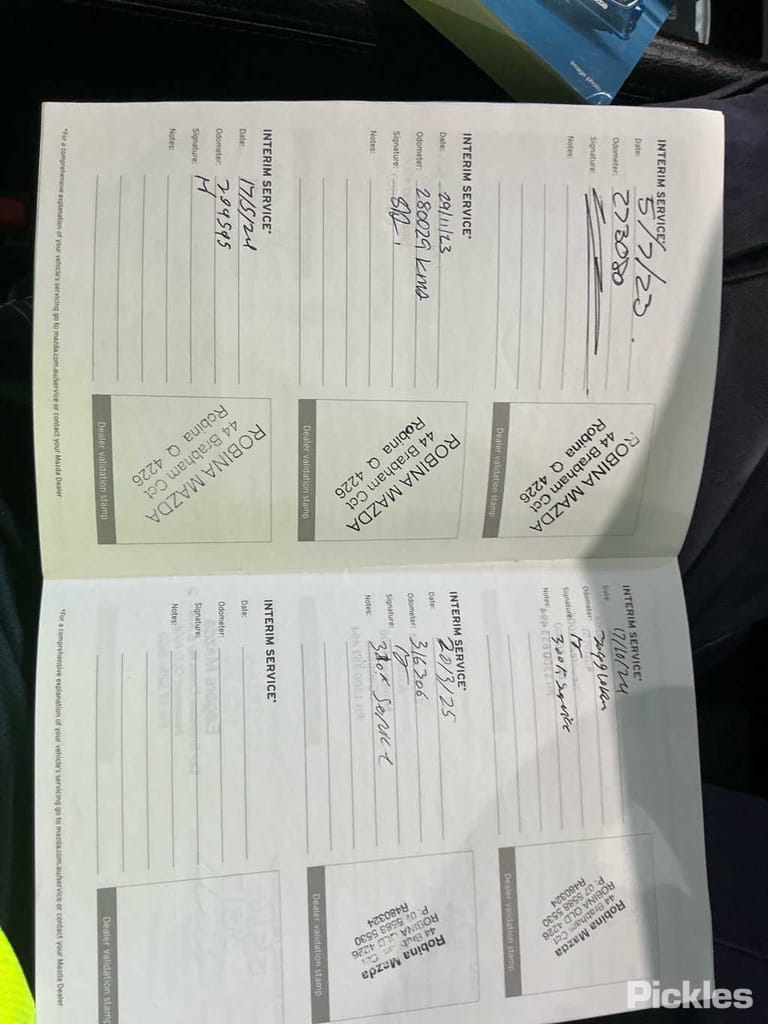 INTERIM SERVICE*
Date: 5/7/23
Odometer: 273080
Signature:
Notes:
ROBINA MAZDA
44 Brabham Cct
Robina Q 4226
Dealer validation stamp
INTERIM SERVICE*
Date: 29/11/23
Odometer: 280029 kms
Signature:
Notes:
ROBINA MAZDA
44 Brabham Cct
Robina Q 4226
Dealer validation stamp
INTERIM SERVICE*
Date: 17/5/24
Odometer: 289595
Signature: M
Notes:
ROBINA MAZDA
44 Brabham Cct
Robina Q 4226
Dealer validation stamp
*For a comprehensive explanation of your vehicle's servicing go to mazda.com.au/service or contact your Mazda Dealer
INTERIM SERVICE*
Date: 17/10/24
Odometer:
Signature:
Notes: 300k service
Robina Mazda
44 Brabham Cct
ROBINA QLD 4226
P: 07 5588 5530
R480324
Dealer validation stamp
INTERIM SERVICE*
Date: 20/3/25
Odometer: 316306
Signature:
Notes: Service
Robina Mazda
44 Cct
ROBINA QLD 4226
P: 07 5588 5530
R480324
Dealer validation stamp
INTERIM SERVICE*
Date:
Odometer:
Signature:
Notes:
Dealer validation stamp
*For a comprehensive explanation of your vehicle's servicing go to mazda.com.au/service or contact your Mazda Dealer
Pickles